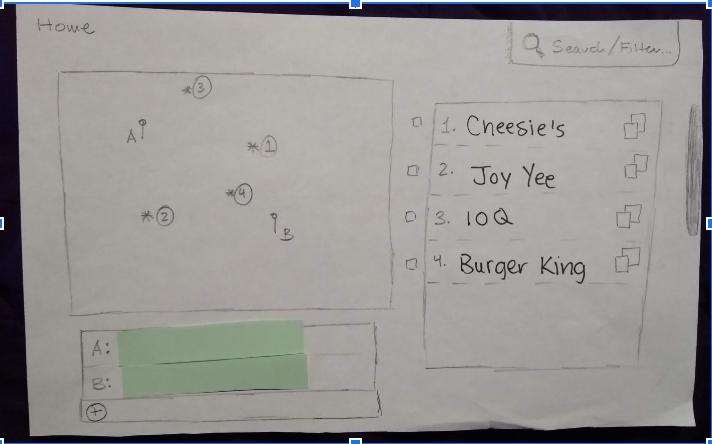 Home
Search/Filter...
3
A
1
4
2
B
1. Cheesie's
2. Joy Yee
3. 10Q
4. Burger King
A:
B:
+